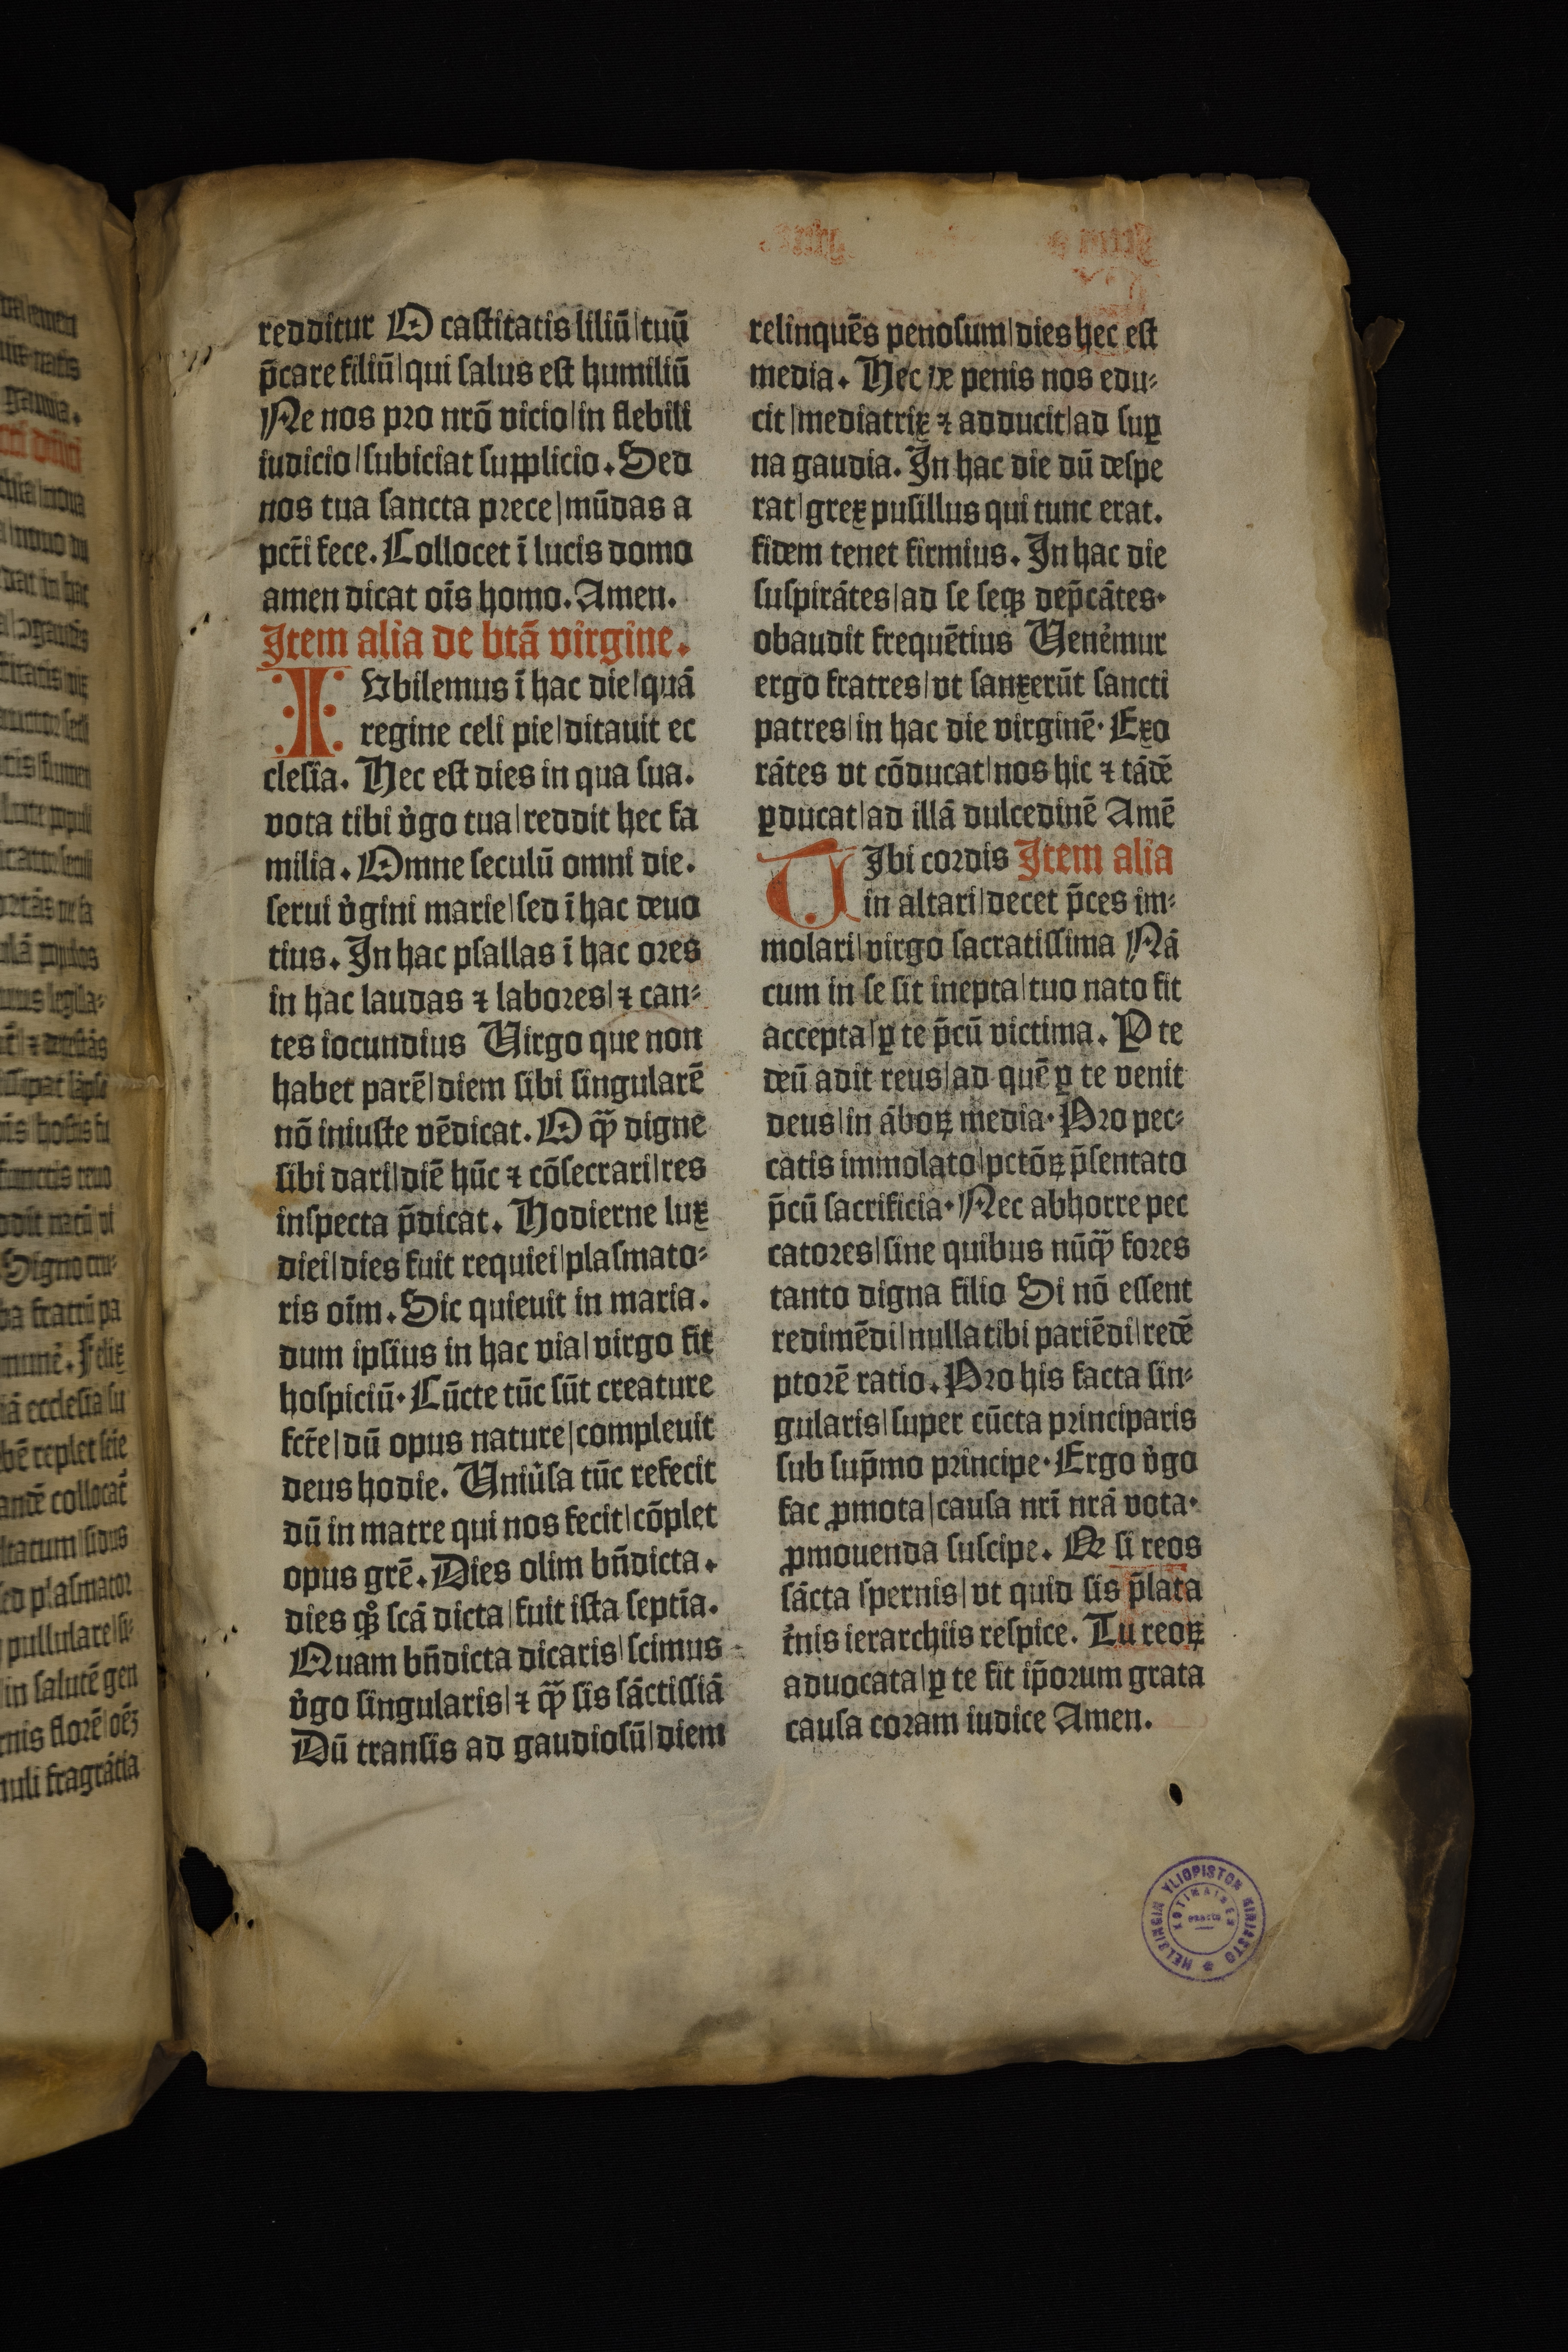 redditur O castitatis liliū|tuū
p̄care filiū|qui salus est humiliū
Ne nos pro nrō vicio|in flebili
iudicio|subiciat supplicio. Sed
nos tua sancta prece|mūdas a
pcti̅ fece. Collocet ī lucis domo
amen dicat oīs homo. Amen.
Item alia de btā virgine.
IVbilemus ī hac die|quā
regine celi pie|ditauit ec
clesia. Hec est dies in qua sua.
vota tibi v̓go tua|reddit hec fa
milia. Omne seculū omni die.
serui v̓gini marie|sed ī hac deuo
tius. In hac psallas ī hac ores
in hac laudas ⁊ labores|⁊ can-
tes iocundius Virgo que non
habet parē|diem sibi singularē
nō iniuste vēdicat. O qͣ̄ digne
sibi dari|diē hūc ⁊ cōsecrari|res
inspecta p̄dicat. Hodierne lux
diei|dies fuit requiei|plasmato-
ris oīm. Sic quieuit in maria.
dum ipsius in hac via|virgo fit
hospiciū. Cūcte tūc sūt creature
fcte̅|dū opus nature|compleuit
deus hodie. Uniu̓sa tūc refecit
dū in matre qui nos fecit|cōplet
opus grē. Dies olim bn̄dicta.
dies qꝫ̊ scā dicta|fuit ista septīa.
Quam bn̄dicta dicaris|scimus
v̓go singularis|⁊ qͣ̄ sis sāctissiā
Dū transis ad gaudiosū|diem
relinquēs penosum|dies hec est
media. Hec de penis nos edu-
cit|mediatrix ⁊ adducit|ad suꝑ
na gaudia. In hac die dū despe
rat|grex pusillus qui tunc erat.
fidem tenet firmius. In hac die
suspirātes|ad se seqꝫ dep̄cātes.
obaudit frequētius Uene̓mur
ergo fratres|vt sanxerūt sancti
patres|in hac die virginē. Exo
rātes vt cōducat|nos hic ⁊ tādē
ꝑducat|ad illā dulcedinē Amē
UIbi cordis Item alia
in altari|decet p̄ces im-
molari|virgo sacratissima Nā
cum in se sit inepta|tuo nato fit
accepta|ꝑ te p̄cū victima. Ꝑ te
deū adit reus|ad quē ꝑ te venit
deus|in āboꝝ media. Pro pec-
catis immolato|pctōꝝ p̄sentato
p̄cū sacrificia. Nec abhorre pec
catores|sine quibus nūqͣ̄ fores
tanto digna filio Si nō essent
redimēdi|nulla tibi pariēdi|redē
ptorē ratio. Pro his facta sin-
gularis|super cūcta principaris
sub sup̄mo principe. Ergo v̓go
fac ꝓmota|causa nrī nrā vota.
ꝓmouenda suscipe. Nā si reos
sācta spernis|vt quid sis p̄lata
t̓nis ierarchiis respice. Tu reoꝝ
aduocata|ꝑ te fit ip̄orum grata
causa coram iudice Amen.
HELSINGIN YLIOPISTON KIRJASTO